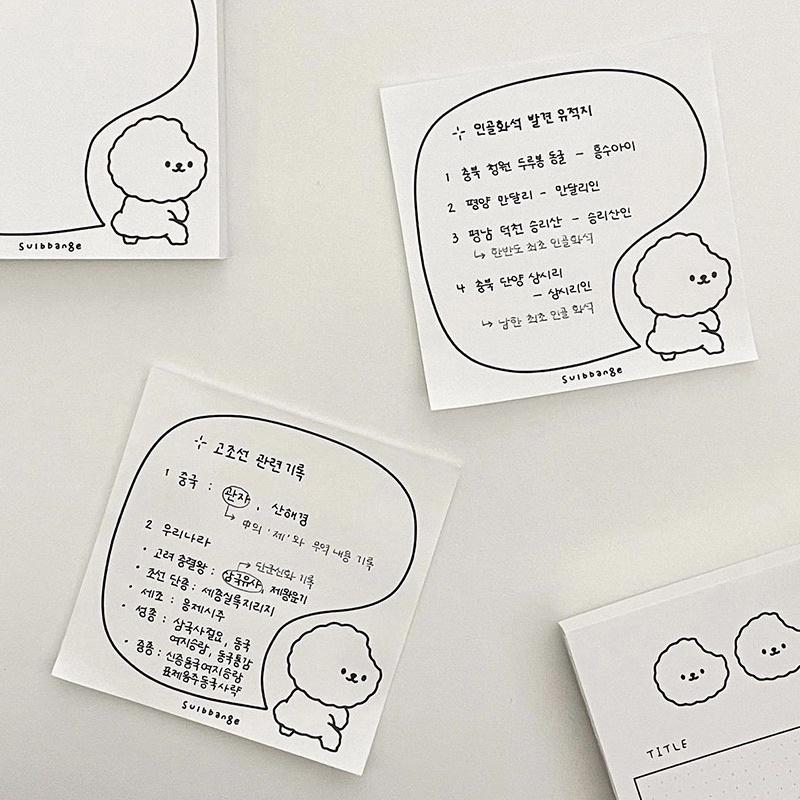 suibbange
⊹ 인골화석 발견 유적지
1 충북 청원 두루봉 동굴 - 흥수아이
2 평양 만달리 - 만달리인
3 평남 덕천 승리산 - 승리산인
↳ 한반도 최초 인골화석
4 충북 단양 상시리
- 상시리인
↳ 남한 최초 인골 화석
suibbange
⊹ 고조선 관련 기록
1 중국 : 관자, 산해경
↳ 中의 '제'와 무역 내용 기록
2 우리나라
→ 단군신화 기록
• 고려 충렬왕 : 삼국유사, 제왕운기
• 조선 단종 : 세종실록지리지
• 세조 : 응제시주
• 성종 : 삼국사절요, 동국
여지승람, 동국통감
• 중종 : 신증동국여지승람
표제음주동국사략
suibbange
TITLE